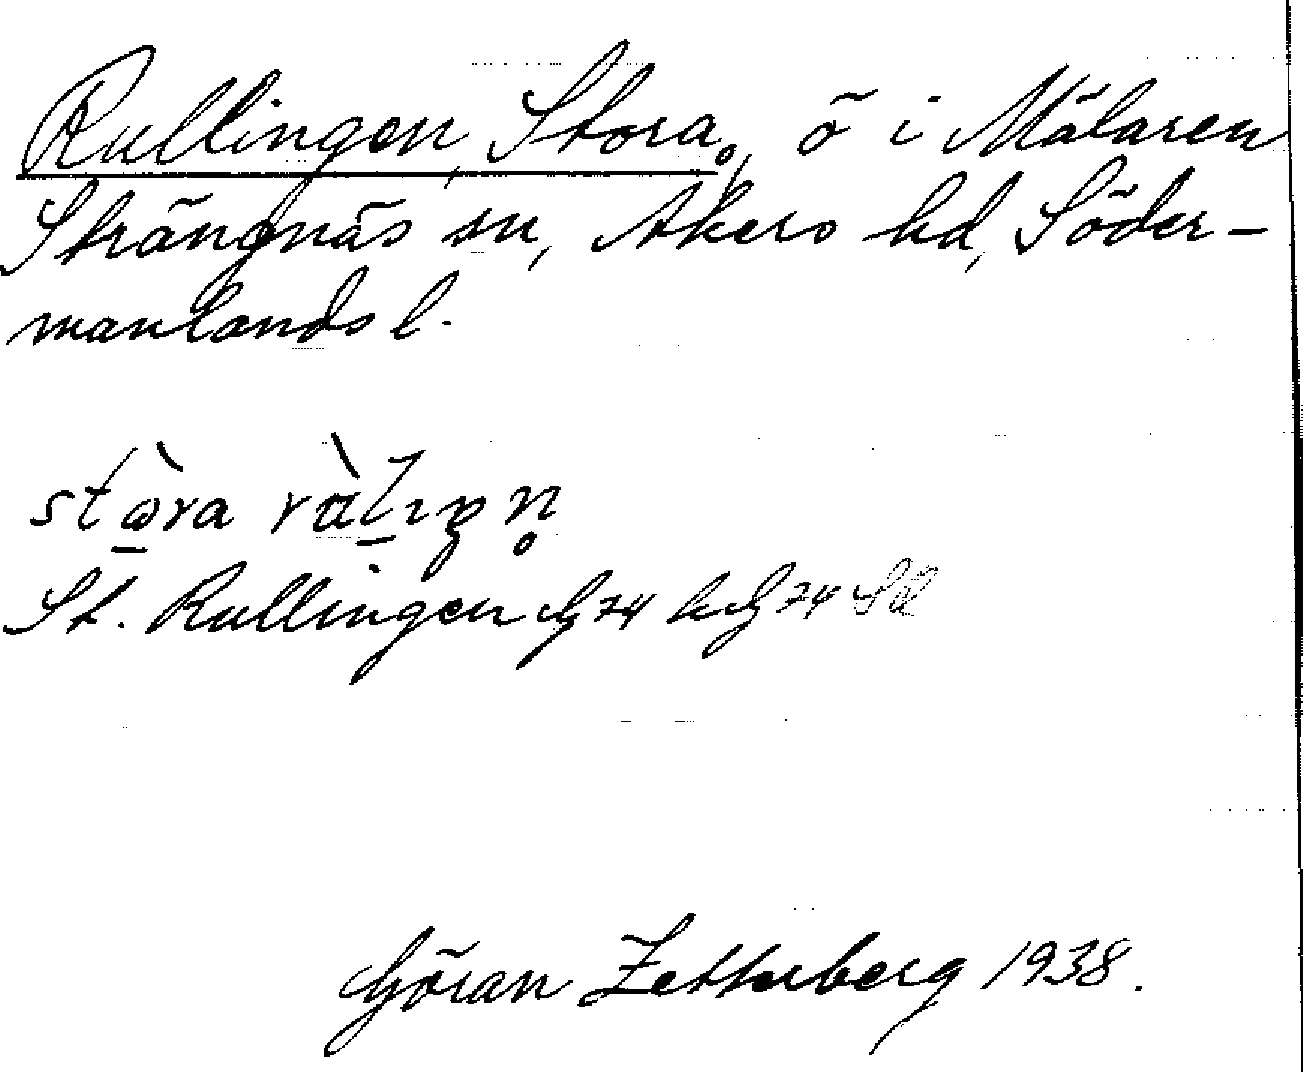 Rullingen, Stora, ö i Mälaren
Strängnäs sn, Åkers hd, Söder-
manlands l.
St. Rullingen G 74 h G 74
Göran Zetterberg 1938.